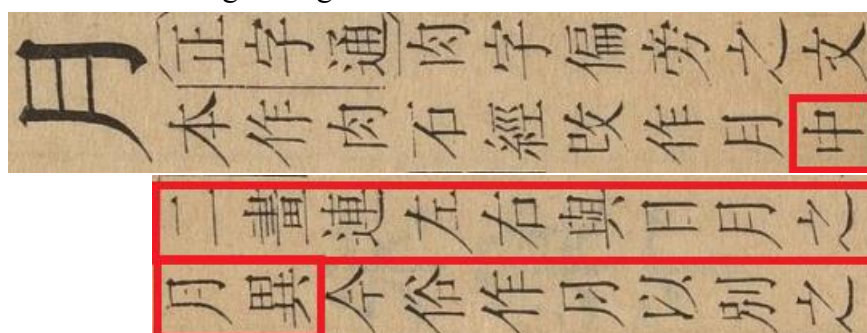 月
正字通肉字偏旁之文
本作肉石經改作月中
二畫連左右與日月之
月異今俗作⺼以別之